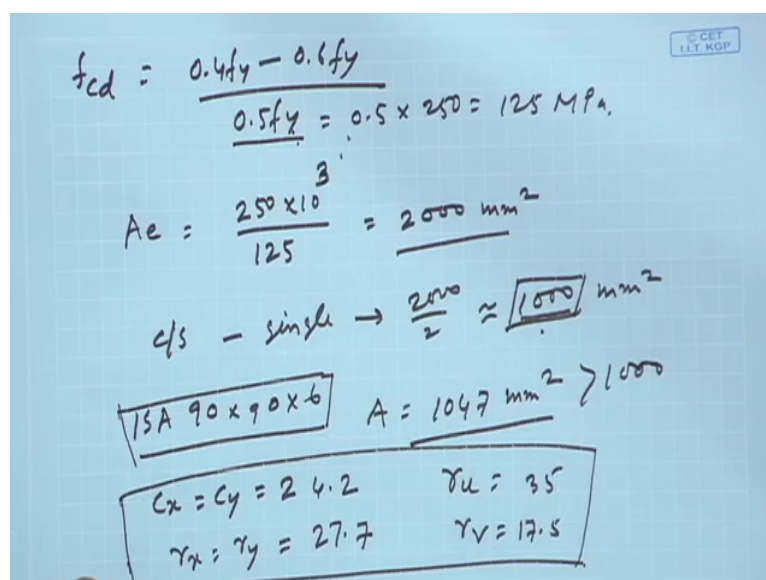 © CET
I.I.T. KGP
fcd = 0.4fy - 0.6fy
0.5fy = 0.5 x 250 = 125 MPa.
Ae = 250 x 10³ / 125 = 2000 mm²
c/s - single → 2000 / 2 ≈ 1000 mm²
ISA 90 x 90 x 6 A = 1047 mm² > 1000
Cx = Cy = 24.2 ru = 35
rx = ry = 27.7 rv = 17.5